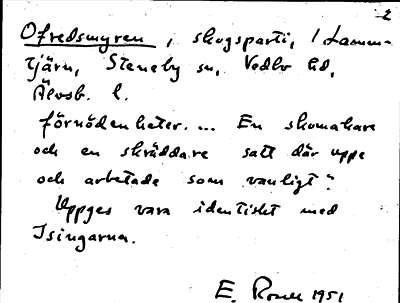 2
Ofredsmyren, skogsparti, i Lamm-
tjärn, Steneby sn, Vedbo hd,
Älvsb. l.
förnödenheter.... En skomakare
och en skräddare satt där uppe
och arbetade som vanligt."
Uppges vara identiskt med
Isingarna.
E. 1951